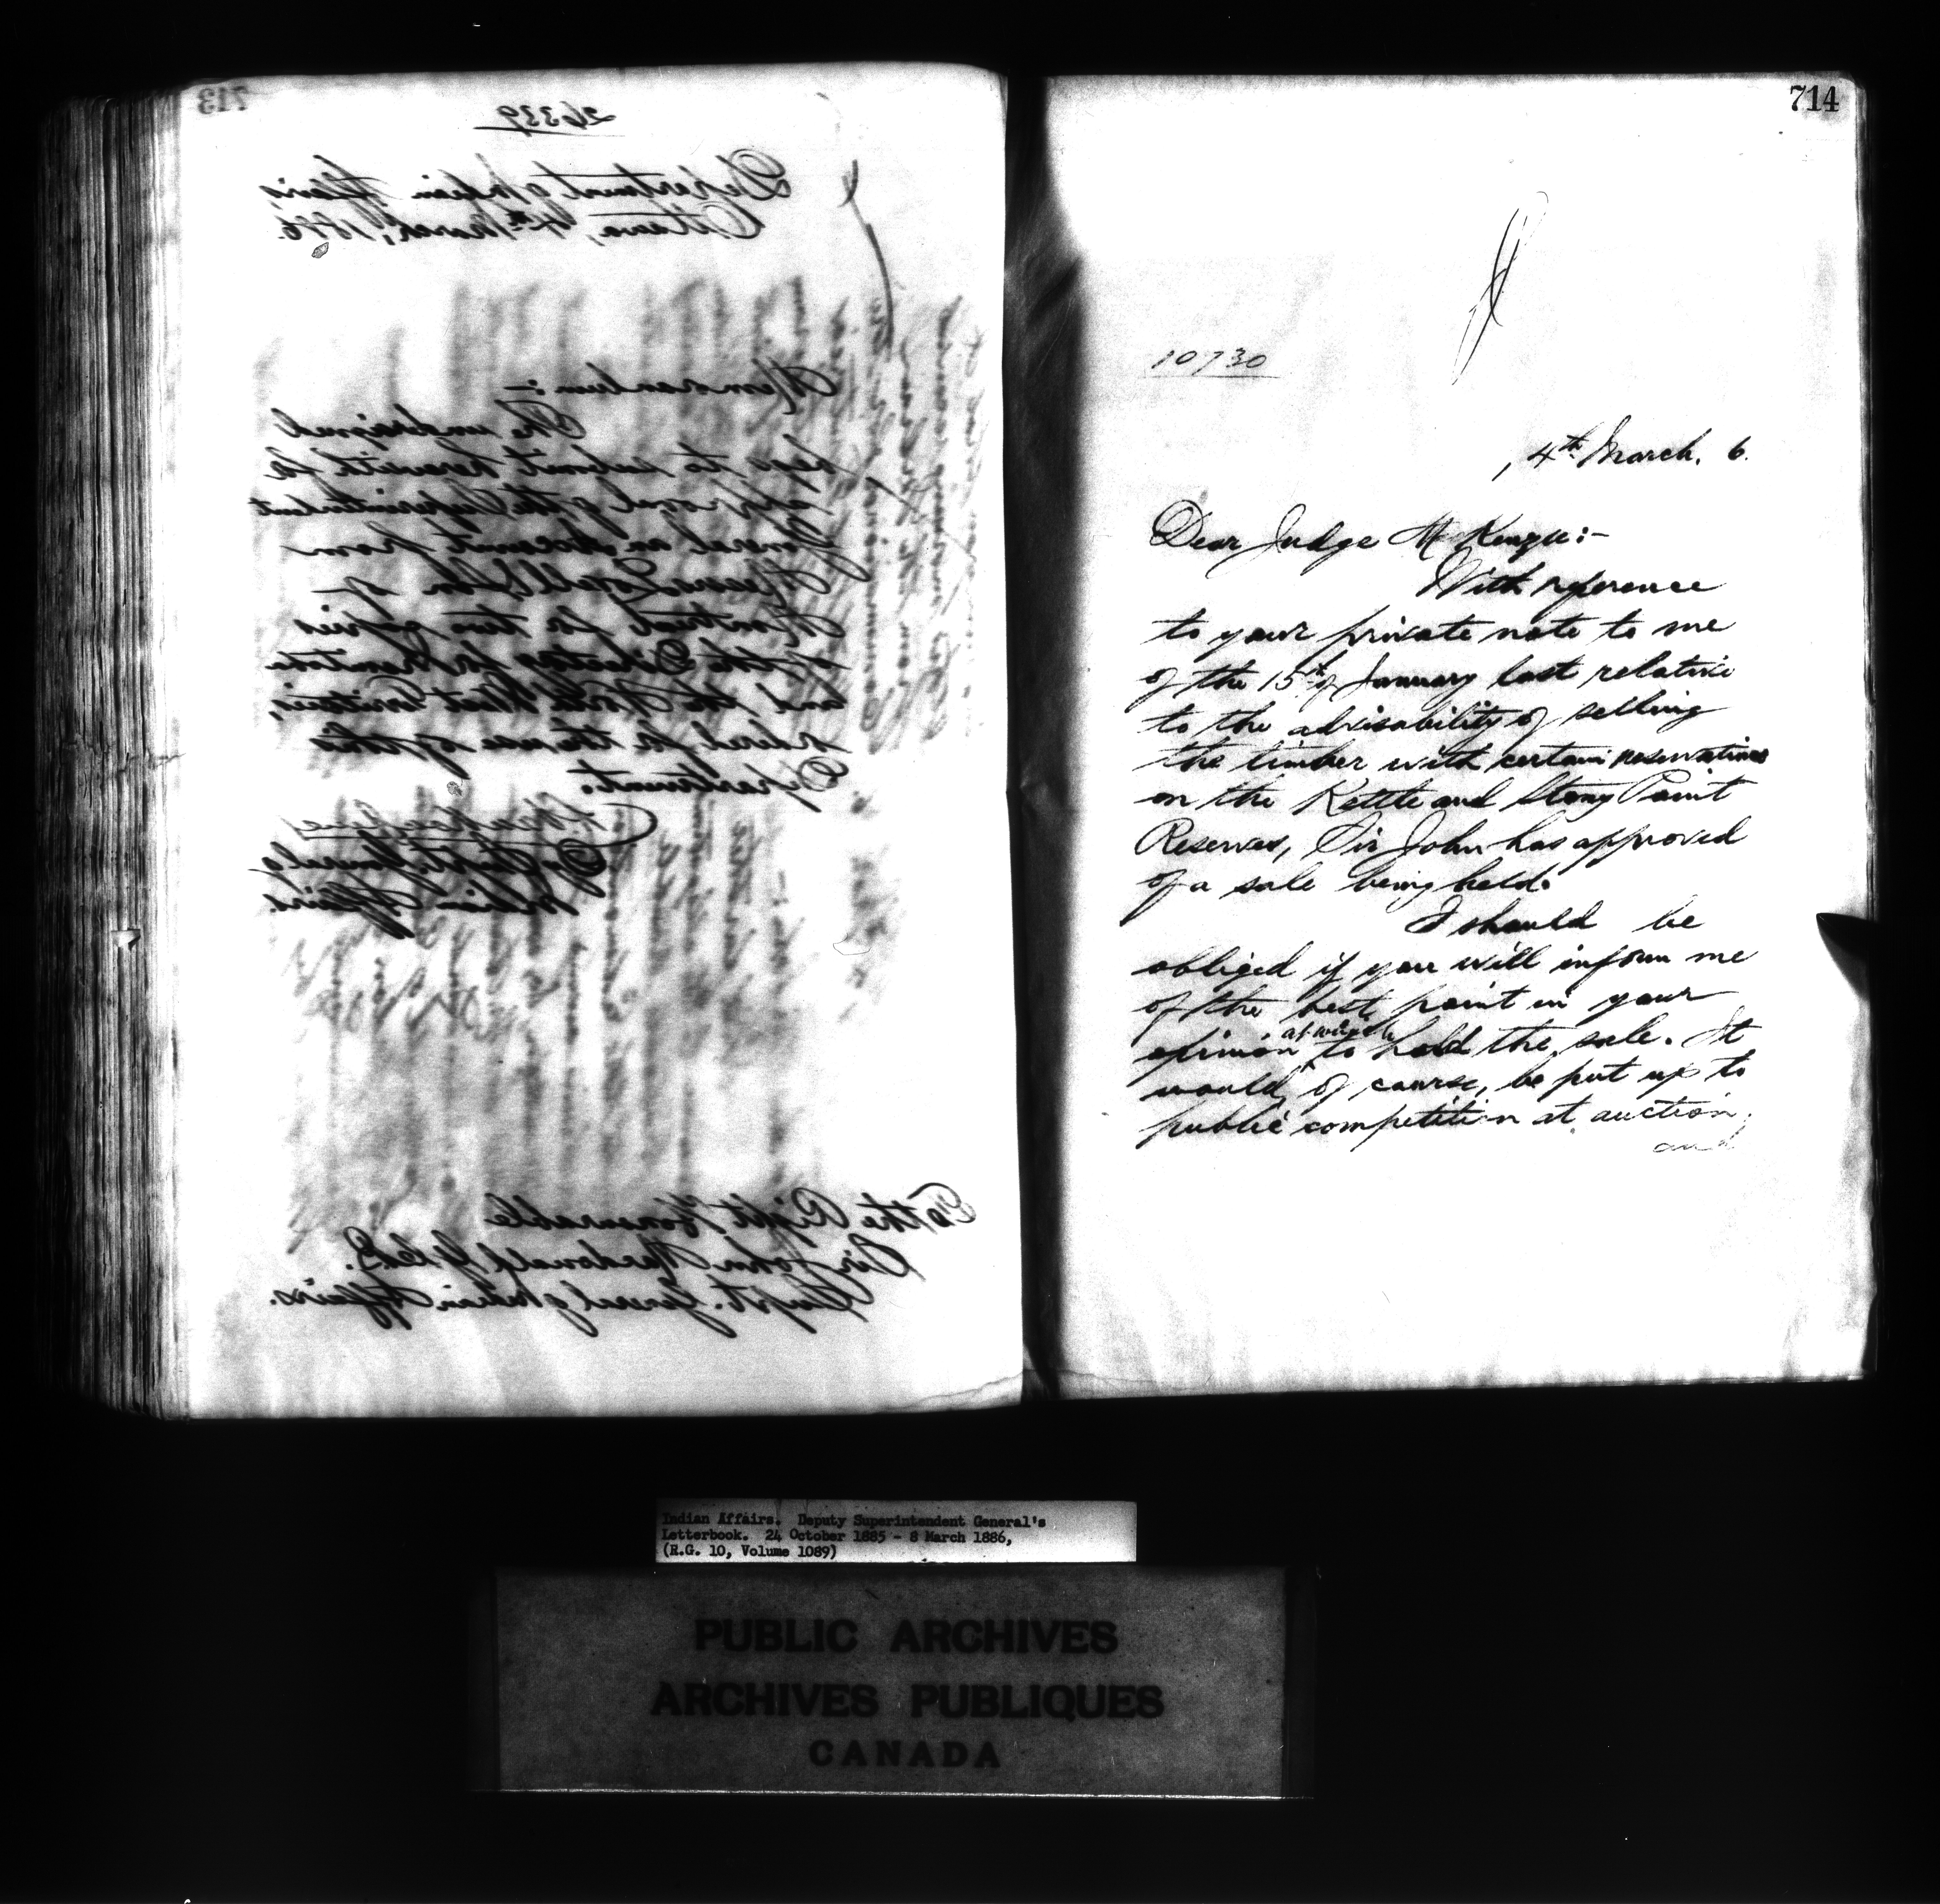 713
26339
Department of Indian Affairs,
Ottawa, 4th March, 1886.
Memorandum :-
The undersigned
begs to submit herewith for
approval of the Superintendent
General an account from
Messrs Lovell & Son of
Montreal for two copies
of the Directory for Manitoba
and the North West Territories,
ordered for the use of this
Department.
Dy Supt. General of
Indian Affairs.
To the Right Honourable
Sir John Macdonald G.C.B.
Supt. General of Indian Affairs.
714
10730
, 4th March. 6.
Dear Judge McKenzie :-
With reference
to your private note to me
of the 15th of January last relative
to the advisability of selling
the timber with certain reservations
on the Kettle and Stony Point
Reserves, Sir John has approved
of a sale being held.
I should be
obliged if you will inform me
of the best point in your
opinion at which to hold the sale. It
would, of course, be put up to
public competition at auction,
and
Indian Affairs. Deputy Superintendent General's
Letterbook. 24 October 1885 - 8 March 1886,
(R.G. 10, Volume 1089)
PUBLIC ARCHIVES
ARCHIVES PUBLIQUES
CANADA